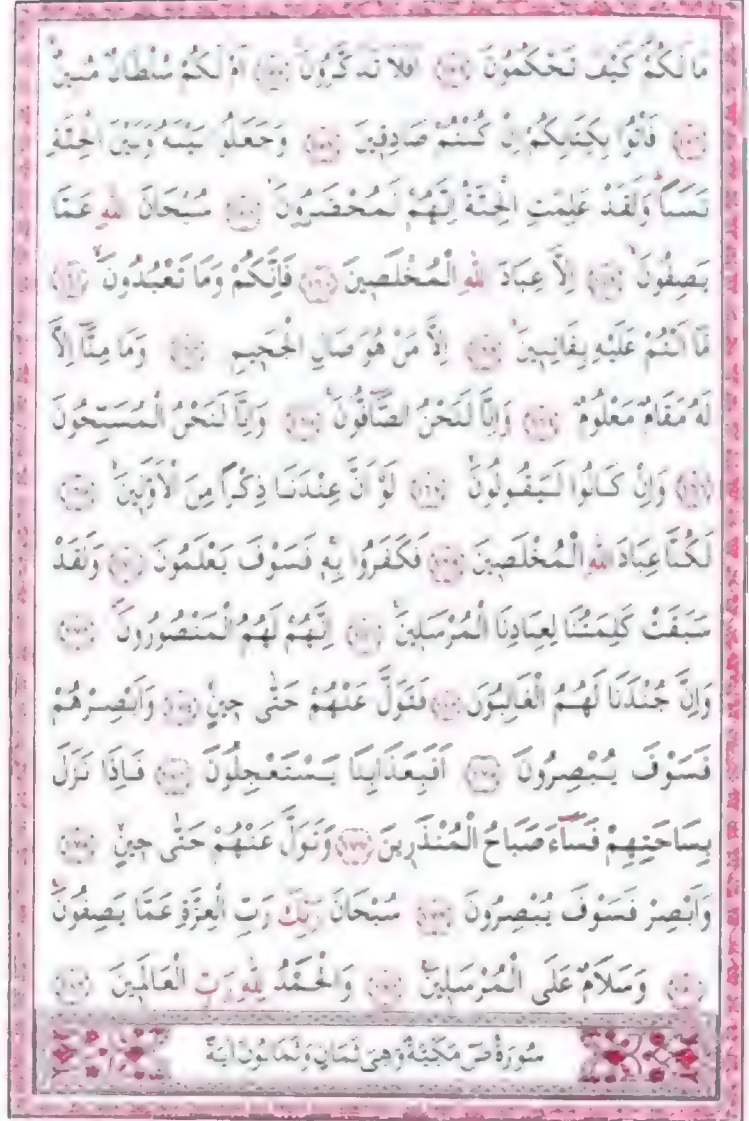 مَا لَكُمْ كَيْفَ تَحْكُمُونَ ﴿١٥٤﴾ اَفَلَا تَذَكَّرُونَ ﴿١٥٥﴾ اَمْ لَكُمْ سُلْطَانٌ مُبِينٌ
﴿١٥٦﴾ فَاْتُوا بِكِتَابِكُمْ اِنْ كُنْتُمْ صَادِقِينَ ﴿١٥٧﴾ وَجَعَلُوا بَيْنَهُ وَبَيْنَ الْجِنَّةِ
نَسَبًا وَلَقَدْ عَلِمَتِ الْجِنَّةُ اِنَّهُمْ لَمُحْضَرُونَ ﴿١٥٨﴾ سُبْحَانَ اللّٰهِ عَمَّا
يَصِفُونَ ﴿١٥٩﴾ اِلَّا عِبَادَ اللّٰهِ الْمُخْلَصِينَ ﴿١٦٠﴾ فَاِنَّكُمْ وَمَا تَعْبُدُونَ ﴿١٦١﴾
مَا اَنْتُمْ عَلَيْهِ بِفَاتِنِينَ ﴿١٦٢﴾ اِلَّا مَنْ هُوَ صَالِ الْجَحِيمِ ﴿١٦٣﴾ وَمَا مِنَّا اِلَّا
لَهُ مَقَامٌ مَعْلُومٌ ﴿١٦٤﴾ وَاِنَّا لَنَحْنُ الصَّافُّونَ ﴿١٦٥﴾ وَاِنَّا لَنَحْنُ الْمُسَبِّحُونَ
﴿١٦٦﴾ وَاِنْ كَانُوا لَيَقُولُونَ ﴿١٦٧﴾ لَوْ اَنَّ عِنْدَنَا ذِكْرًا مِنَ الْاَوَّلِينَ ﴿١٦٨﴾
لَكُنَّا عِبَادَ اللّٰهِ الْمُخْلَصِينَ ﴿١٦٩﴾ فَكَفَرُوا بِهِ فَسَوْفَ يَعْلَمُونَ ﴿١٧٠﴾ وَلَقَدْ
سَبَقَتْ كَلِمَتُنَا لِعِبَادِنَا الْمُرْسَلِينَ ﴿١٧١﴾ اِنَّهُمْ لَهُمُ الْمَنْصُورُونَ ﴿١٧٢﴾
وَاِنَّ جُنْدَنَا لَهُمُ الْغَالِبُونَ ﴿١٧٣﴾ فَتَوَلَّ عَنْهُمْ حَتّٰى حِينٍ ﴿١٧٤﴾ وَاَبْصِرْهُمْ
فَسَوْفَ يُبْصِرُونَ ﴿١٧٥﴾ اَفَبِعَذَابِنَا يَسْتَعْجِلُونَ ﴿١٧٦﴾ فَاِذَا نَزَلَ
بِسَاحَتِهِمْ فَسَاۤءَ صَبَاحُ الْمُنْذَرِينَ ﴿١٧٧﴾ وَتَوَلَّ عَنْهُمْ حَتّٰى حِينٍ ﴿١٧٨﴾
وَاَبْصِرْ فَسَوْفَ يُبْصِرُونَ ﴿١٧٩﴾ سُبْحَانَ رَبِّكَ رَبِّ الْعِزَّةِ عَمَّا يَصِفُونَ
﴿١٨٠﴾ وَسَلَامٌ عَلَى الْمُرْسَلِينَ ﴿١٨١﴾ وَالْحَمْدُ لِلّٰهِ رَبِّ الْعَالَمِينَ ﴿١٨٢﴾
سُورَةُ صۤ مَكِّيَّةٌ وَهِيَ ثَمَانٍ وَثَمَانُونَ اٰيَةً